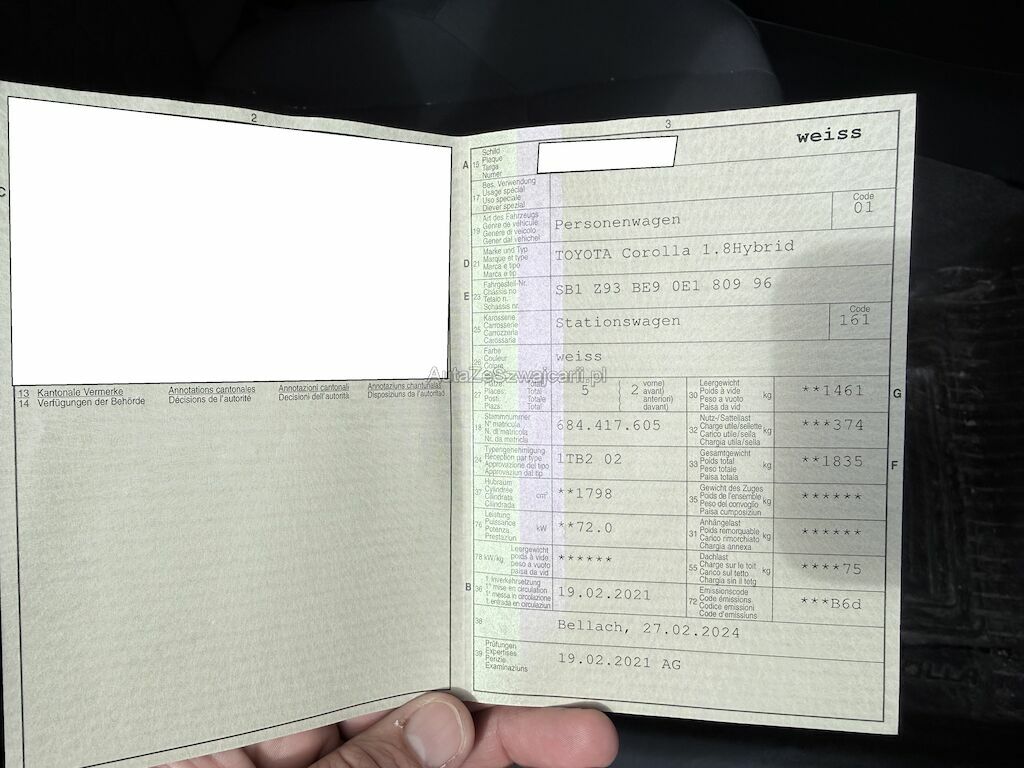 2
13 Kantonale Vermerke Annotations cantonales Annotazioni cantonali Annotaziuns chantunalas
14 Verfügungen der Behörde Décisions de l'autorité Decisioni dell'autorità Disposiziuns da l'autoritad
C
3
weiss
A 15 Schild
Plaque
Targa
Numer
17 Bes. Verwendung
Usage spécial
Uso speciale
Diever spezial
19 Art des Fahrzeugs
Genre de véhicule
Genere di veicolo
Gener dal vehichel
Personenwagen
Code
01
D 21 Marke und Typ
Marque et type
Marca e tipo
Marca e tip
TOYOTA Corolla 1.8Hybrid
E 23 Fahrgestell-Nr.
Châssis no
Telaio n.
Schassis nr.
SB1 Z93 BE9 0E1 809 96
25 Karosserie
Carrosserie
Carrozzeria
Carossaria
Stationswagen
Code
161
26 Farbe
Couleur
Colore
weiss
AutaZeSzwajcarii.pl
27 Places: Total
Posti: Totale
Plazs: Total
5 (2 vorne)
avant)
anteriori)
davant)
30 Leergewicht
Poids à vide
Peso a vuoto
Paisa da vid
kg
**1461
G
18 Stammnummer
N° matricule
N. di matricola
Nr. da matricla
684.417.605
32 Nutz-/Sattellast
Charge utile/sellette
Carico utile/sella
Chargia utila/sella
kg
***374
24 Typengenehmigung
Réception par type
Approvazione del tipo
Approvaziun dal tip
1TB2 02
33 Gesamtgewicht
Poids total
Peso totale
Paisa totala
kg
**1835
F
37 Hubraum
Cylindrée
Cilindrata
Cilindrada
cm³
**1798
35 Gewicht des Zuges
Poids de l'ensemble
Peso del convoglio
Paisa cumposiziun
kg
******
76 Leistung
Puissance
Potenza
Prestaziun
kW
**72.0
31 Anhängelast
Poids remorquable
Carico rimorchiato
Chargia annexa
kg
******
78 kW/kg Leergewicht
poids à vide
peso a vuoto
paisa da vid
******
55 Dachlast
Charge sur le toit
Carico sul tetto
Chargia sin il tetg
kg
****75
B 36 1. Inverkehrsetzung
1re mise en circulation
1a messa in circolazione
1. entrada en circulaziun
19.02.2021
72 Emissionscode
Code émissions
Codice emissioni
Code d'emissiuns
***B6d
38
Bellach, 27.02.2024
39 Prüfungen
Expertises
Perizie
Examinaziuns
19.02.2021 AG